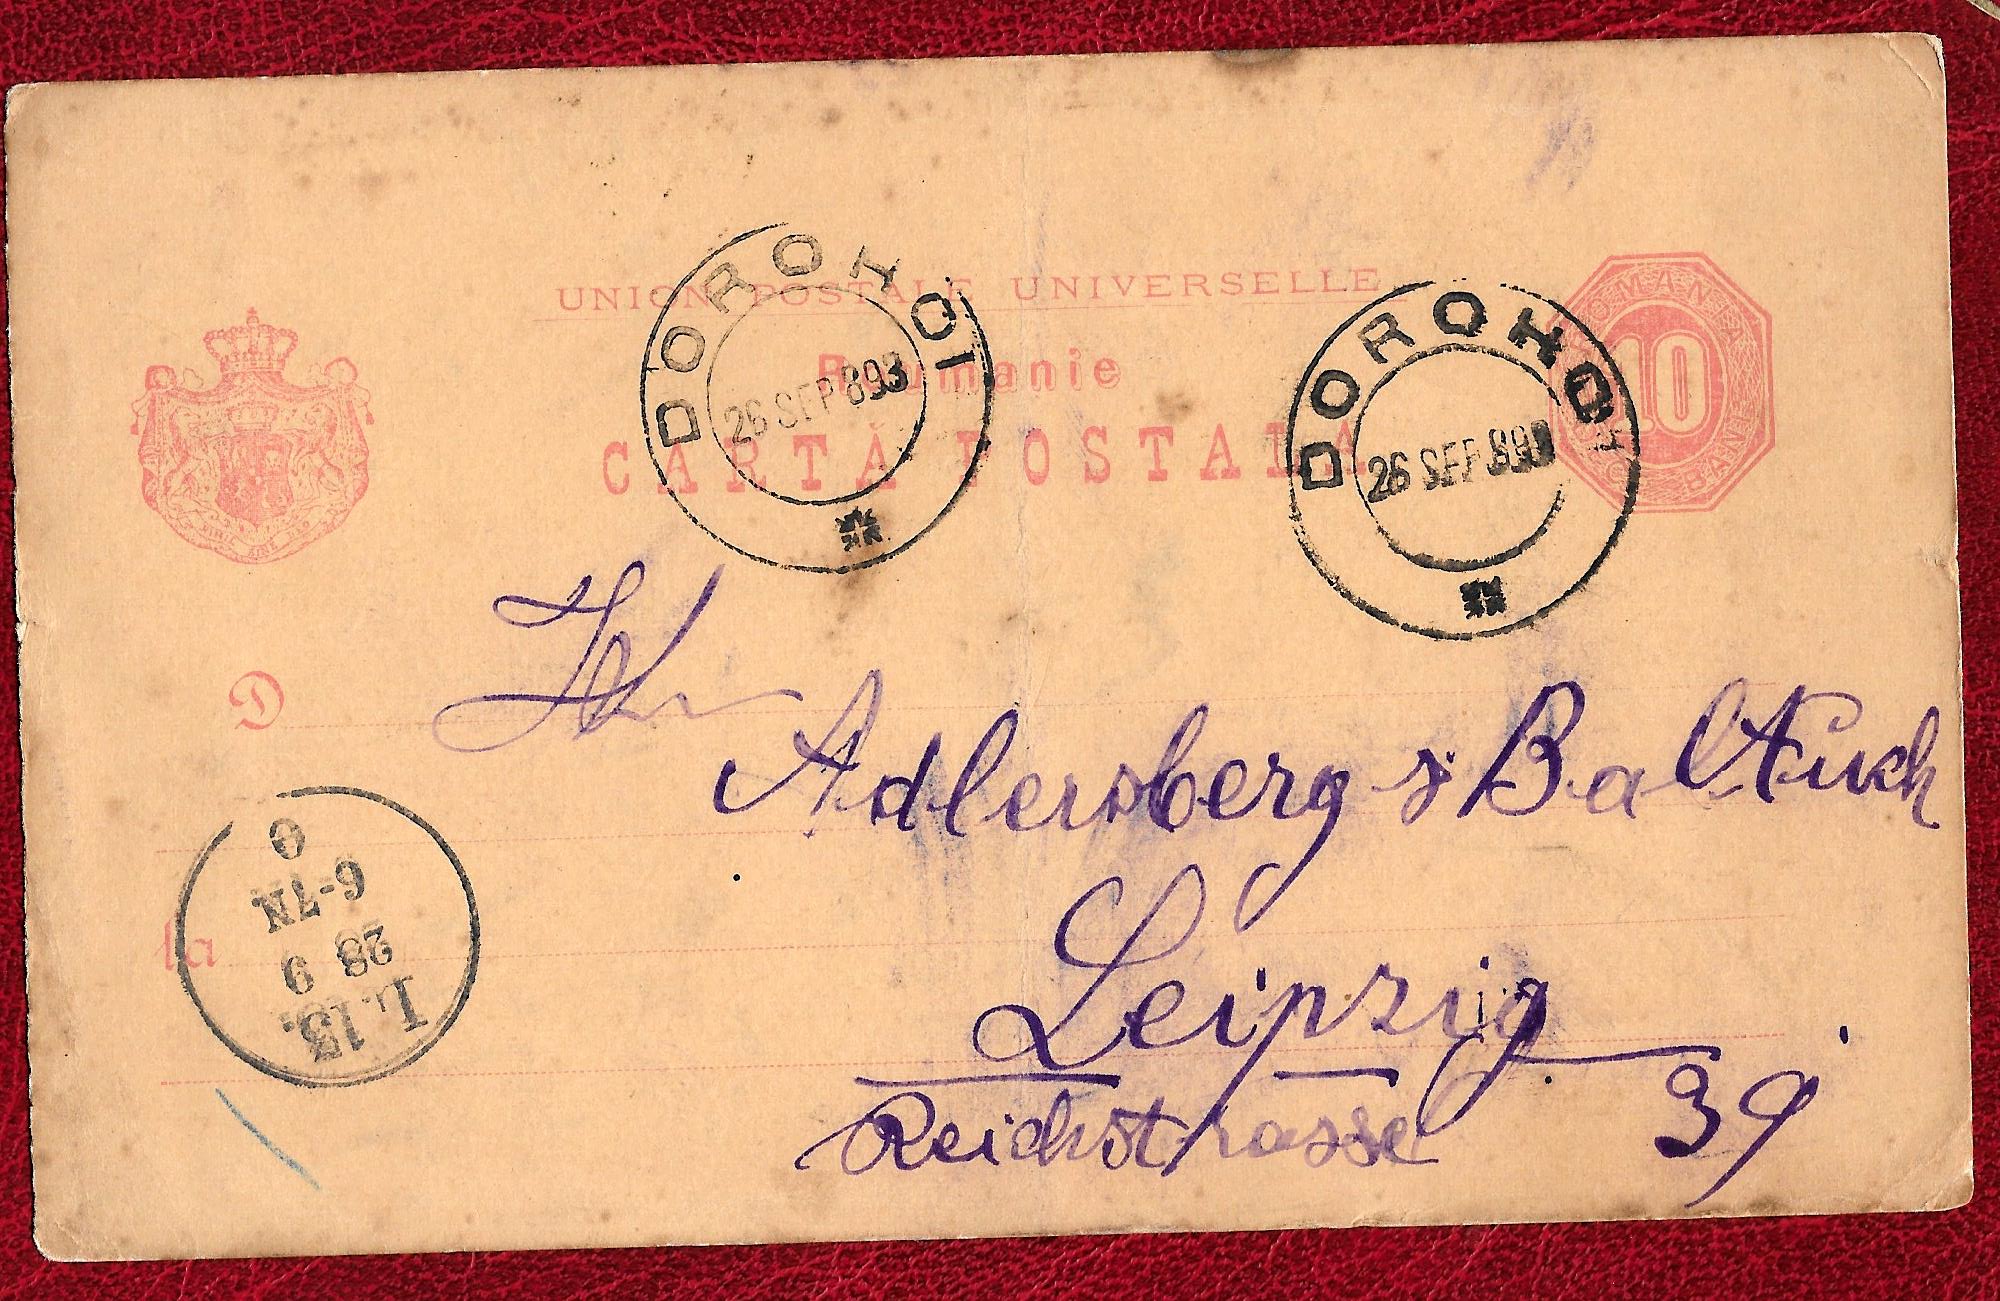 UNION POSTALE UNIVERSELLE
Roumanie
CARTĂ POSTALĂ
ROMANIA
10
BANI
DOROHOI
26 SEP 893
DOROHOI
26 SEP 893
NIHIL SINE DEO
D
Adlersberg & Baltuch
la
Leipzig
Reichstrasse 39
L. 13.
28 9
6-7N